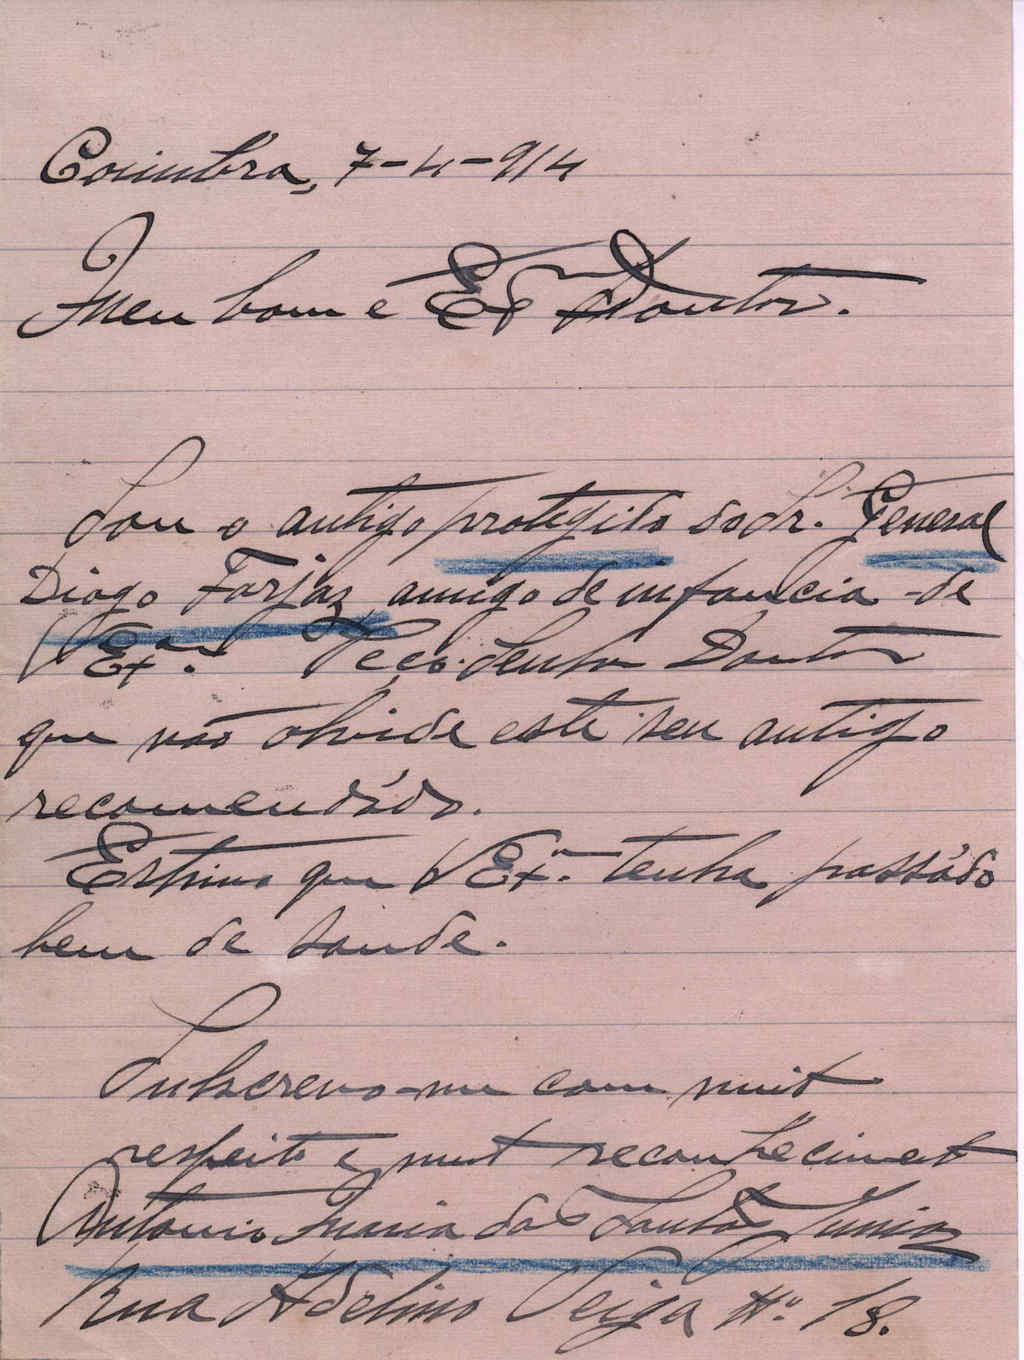 Coimbra, 7-4-914
Meu bom e Exmo Doutor.
Sou o antigo protegido do Sr. General
Diogo Forjaz, amigo de infancia de
V Exa. Peço Senhor Doutor
que não olvide este seu antigo
recomendádo.
Estimo que V Exa. tenha passádo
bem de saude.
Subscrevo-me com muito
respeito e muito reconhecimento
Antonio Maria dos Santos Junior
Rua Adelino Veiga No. 18.